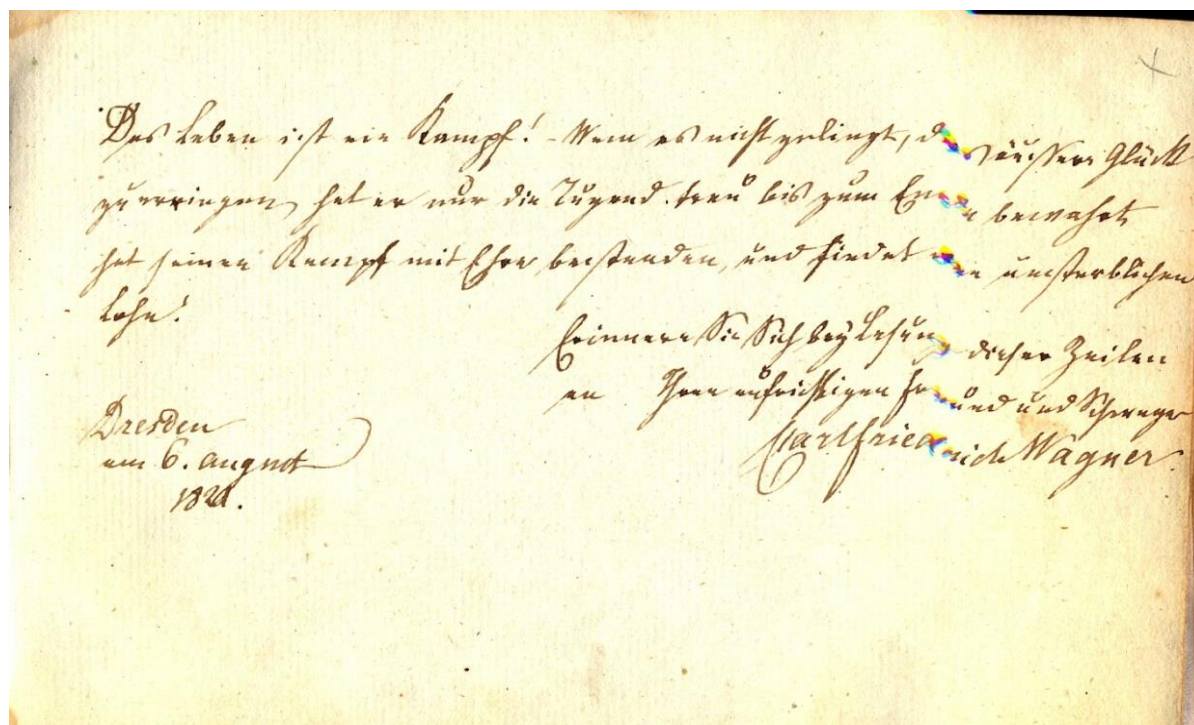 Das Leben ist ein Kampf! - Wem es nicht gelingt, das äussere Glück
zu erringen, hat er nur die Tugend treu bis zum Ende bewahrt,
hat seinen Kampf mit Ehre bestanden, und findet den unsterblichen
Lohn!
Erinnern Sie Sich bey Lesung dieser Zeilen
an Ihren aufrichtigen Freund und Schwager
Carl Friedrich Wagner
Dresden
am 6. August